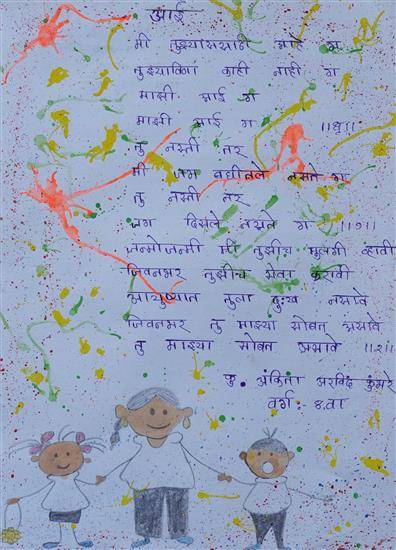 आई
मी तुझ्यासाठी आहे ग
तुझ्याविना काही नाही ग
माझी आई ग
माझी आई ग ॥धृ॥
तु नसती तर
मी जग बघीतले नसते ग
तु नसती तर
जग दिसले नसते ग ॥१॥
जन्मोजन्मी मी तुझीच मुलगी व्हावी
जिवनभर तुझीच सेवा करावी
आयुष्यात तुला दुःख नसावे
जिवनभर तु माझ्या सोबत असावे
तु माझ्या सोबत असावे ॥२॥
कु. अंकिता अरविंद कुंमरे
वर्ग: ८.वा